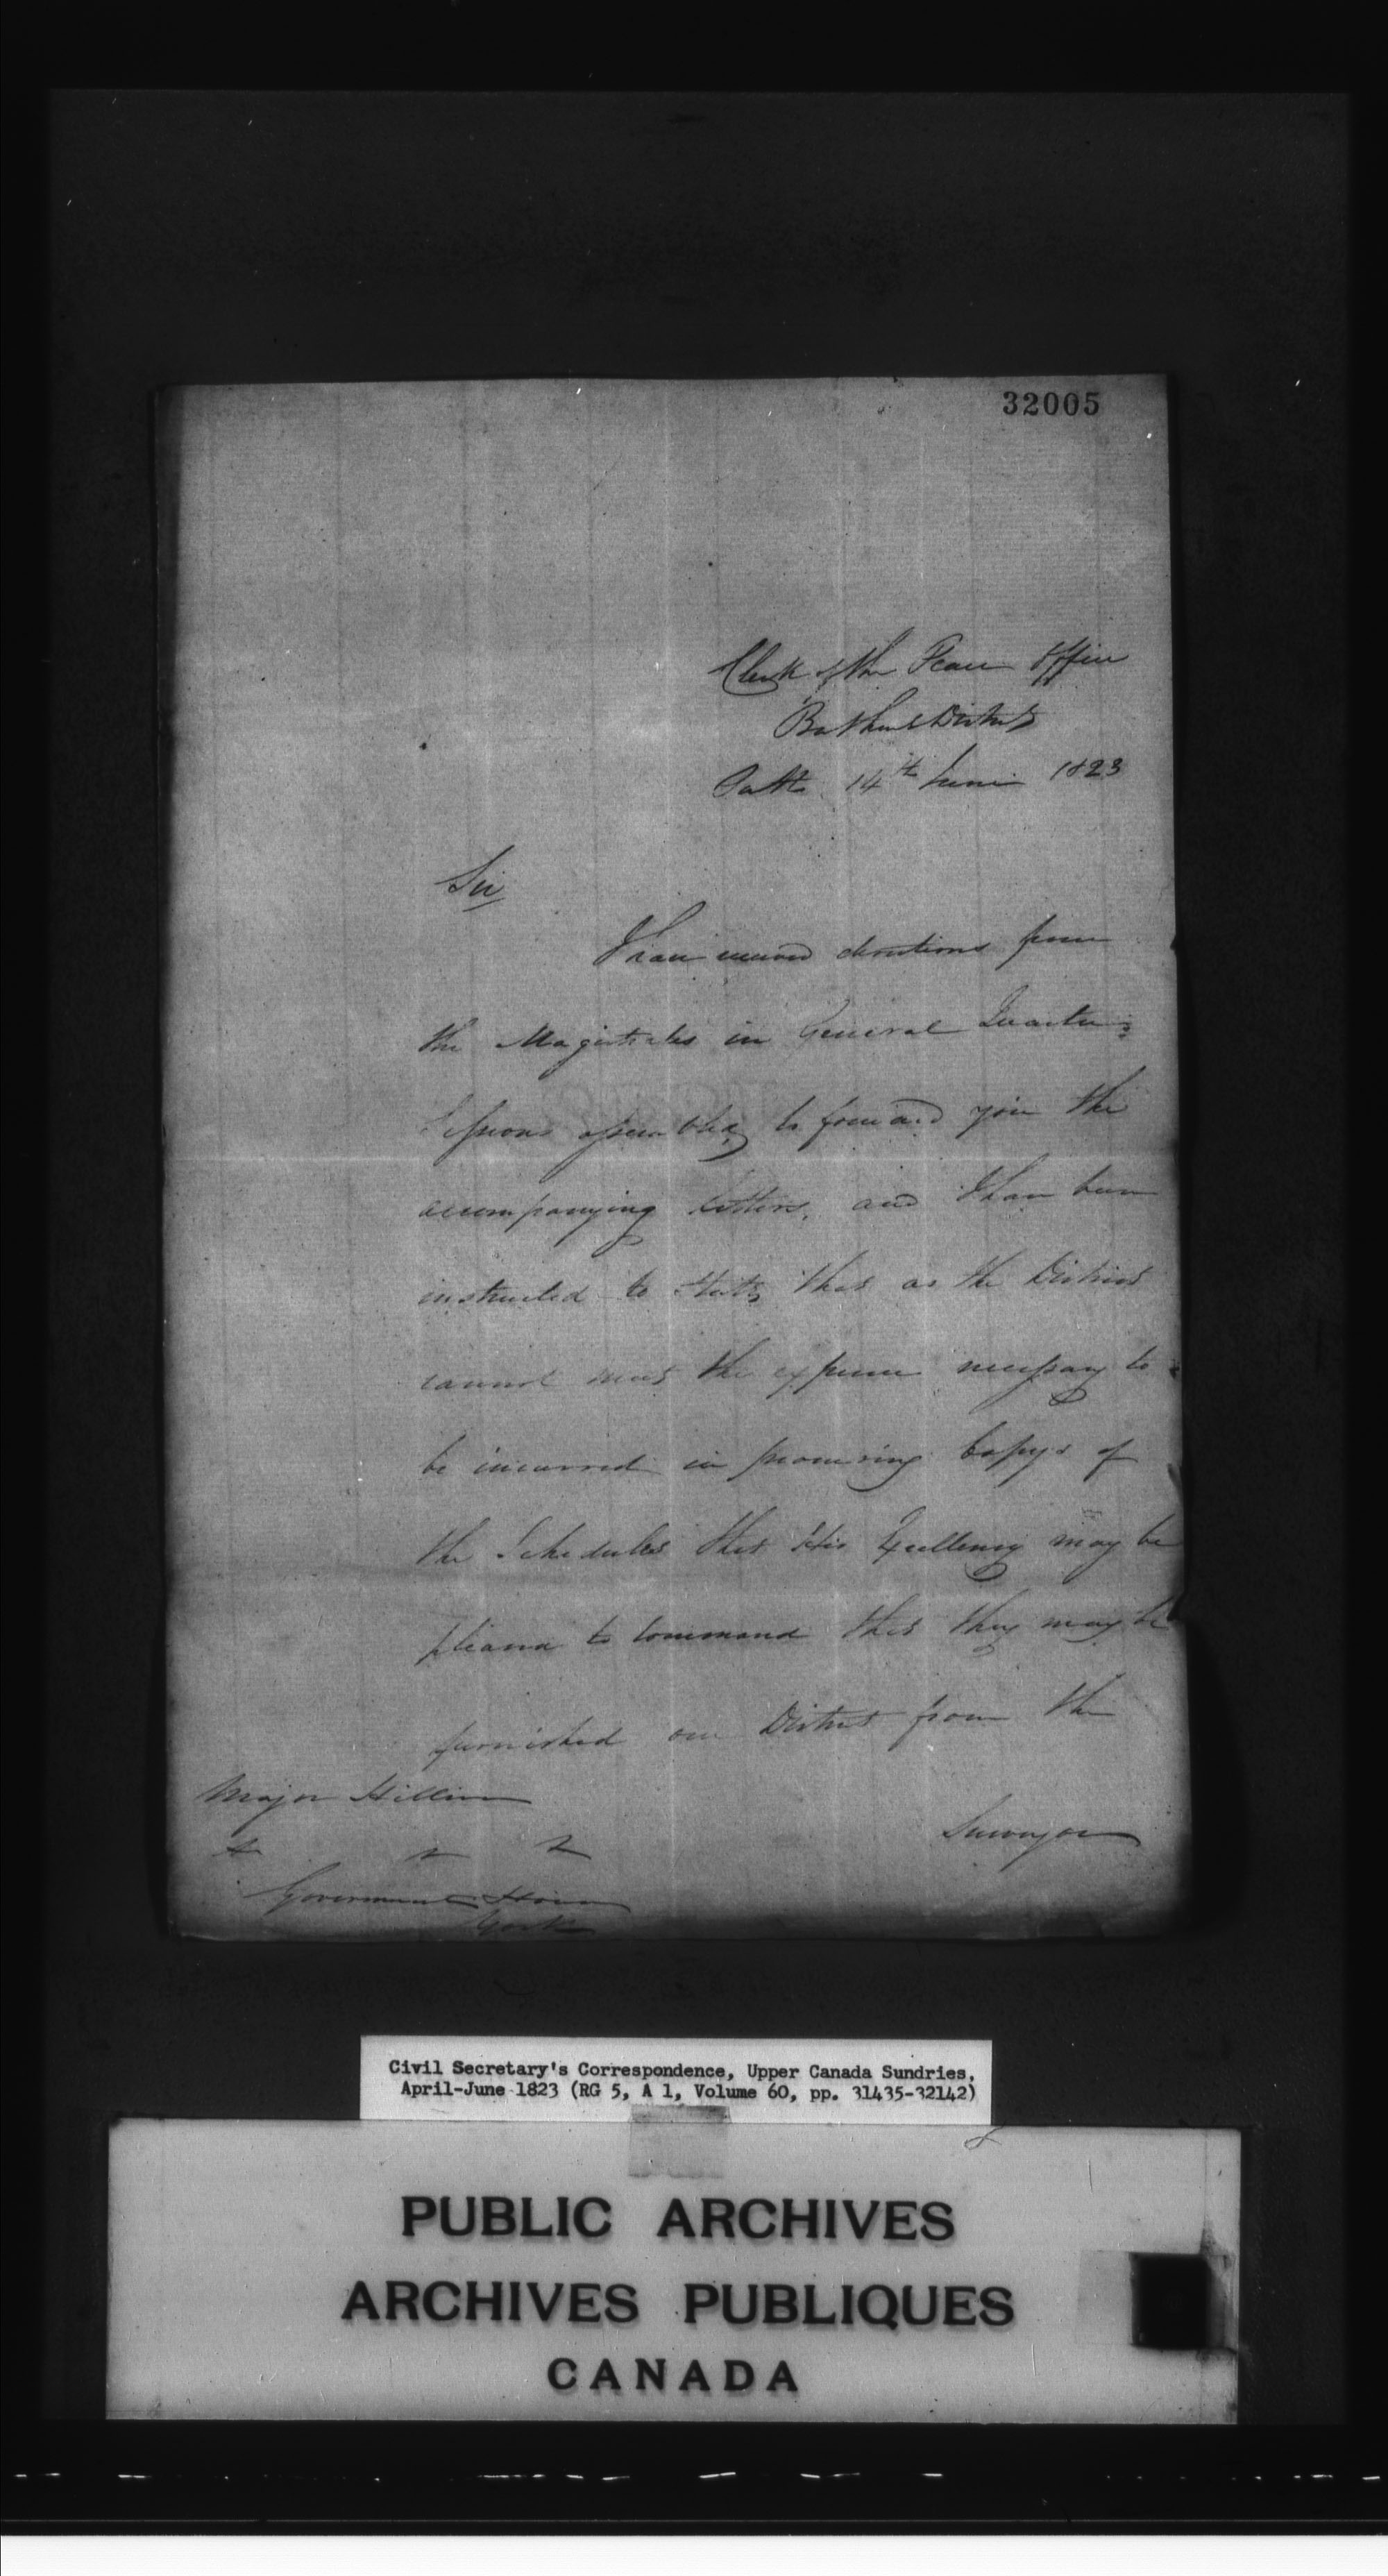 32005
Clerk of the Peace Office
Bathurst District
Perth 14th June 1823
Sir
I have received directions from
the Magistrates in General Quarter
Sessions assembled, to forward you the
accompanying letters, and I have been
instructed to state, that as the District
cannot meet the expense necessary to
be incurred in procuring Copys of
the Schedules that His Excellency may be
pleased to command that they may be
furnished our District from the
Surveyor
Major Hillier
&c &c &c
Government House
York
Civil Secretary's Correspondence, Upper Canada Sundries,
April-June 1823 (RG 5, A 1, Volume 60, pp. 31435-32142)
PUBLIC ARCHIVES
ARCHIVES PUBLIQUES
CANADA